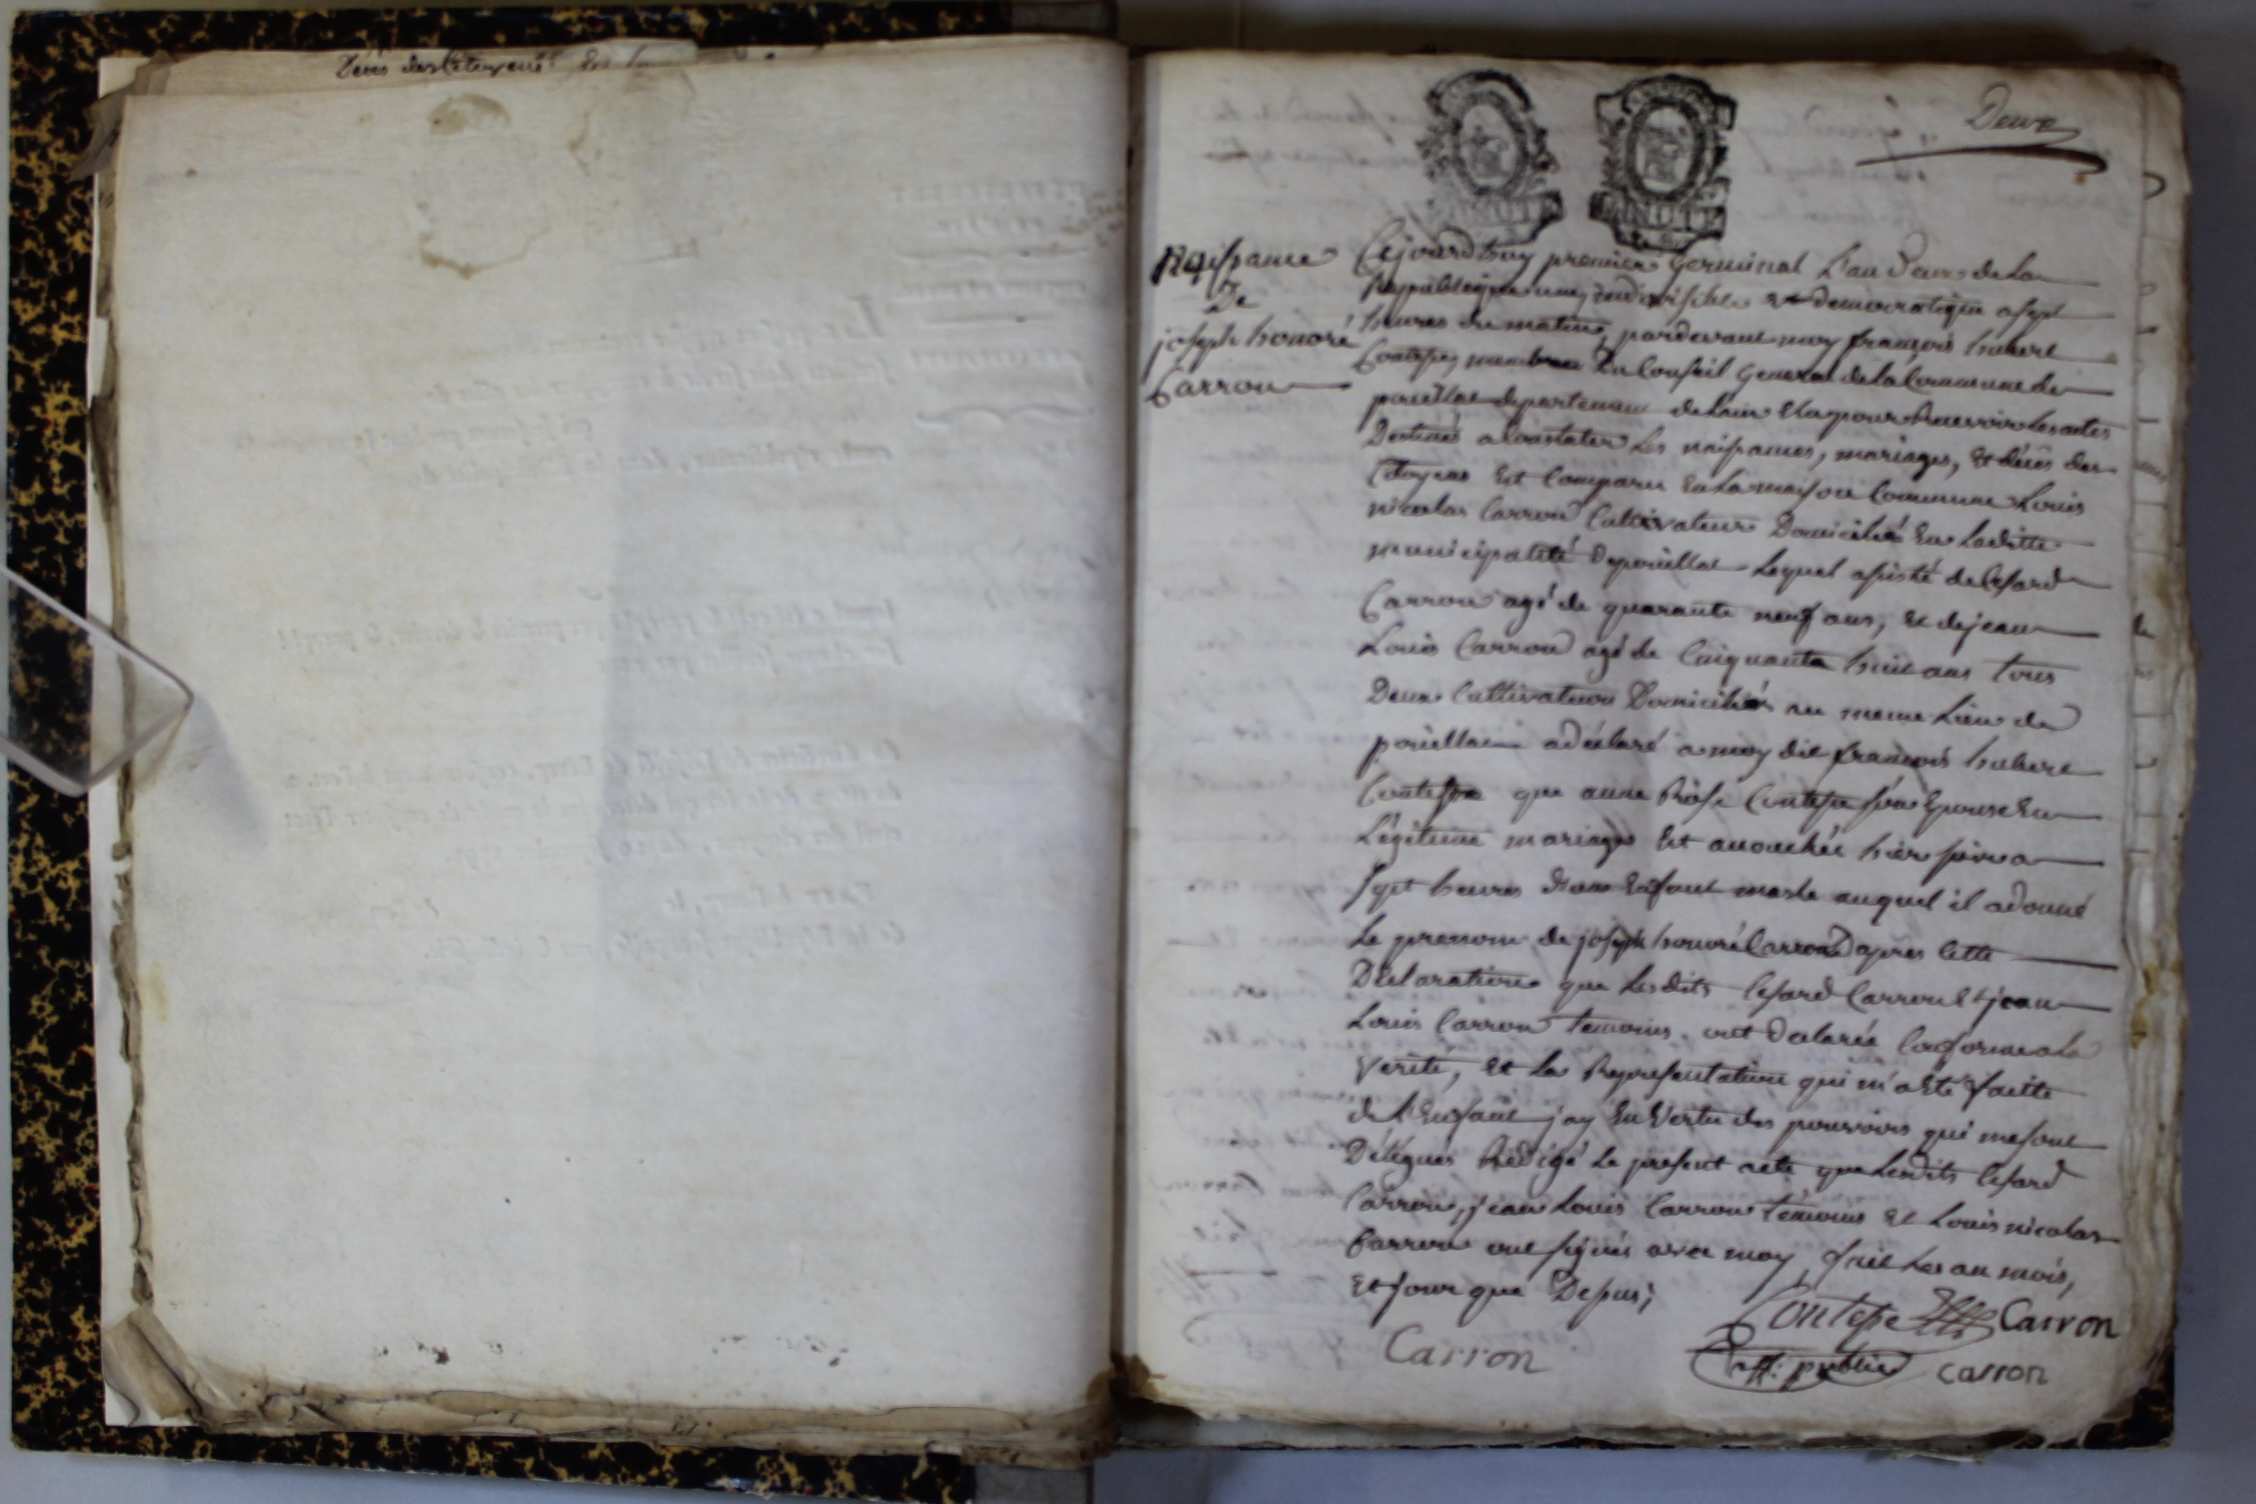 Décès des Citoyens
Deux
Naissance
De
joseph honoré
Carron
Cejourdhuy premier Germinal L'an Deux de La
Republique une, indivisible et democratique a sept
heures du matin, pardevant moy françois hubert
Contesse, membre Du Conseil General de la Commune de
pouillat departement de Lain Elu pour Recevoir Les actes
Destinés a Constater Les naissances, mariages, et décès des
Citoyens Est Comparu En La maison Commune Louis
nicolas Carron Cultivateur Domicilié En Laditte
municipalité De pouillat Lequel assisté de Cesard
Carron agé de quarante neuf ans, et de jean
Louis Carron agé de Cinquante huit ans tous
Deux Cultivateurs Domiciliés au meme Lieu de
pouillat a déclaré a moy dit françois hubert
Contesse que anne Rose Contesse son Epouse En
Légitime mariage Est accouchée hier soir a
sept heures d'un Enfant masle auquel il a donné
Le prenom de joseph honoré Carron d'apres Cette
Déclaration que Lesdits Cesard Carron et jean
Louis Carron temoins ont déclarée Conforme a La
verité, et La Representation qui m'a été faitte
de L'Enfant jay En Vertu des pouvoirs qui me sont
Délégués Rédigé Le present acte que Lesdits Cesard
Carron, jean Louis Carron témoins et Louis nicolas
Carron ont signés avec moy, fait Les an mois,
et jour que Dessus;
Contesse Carron
Carron off: public carron